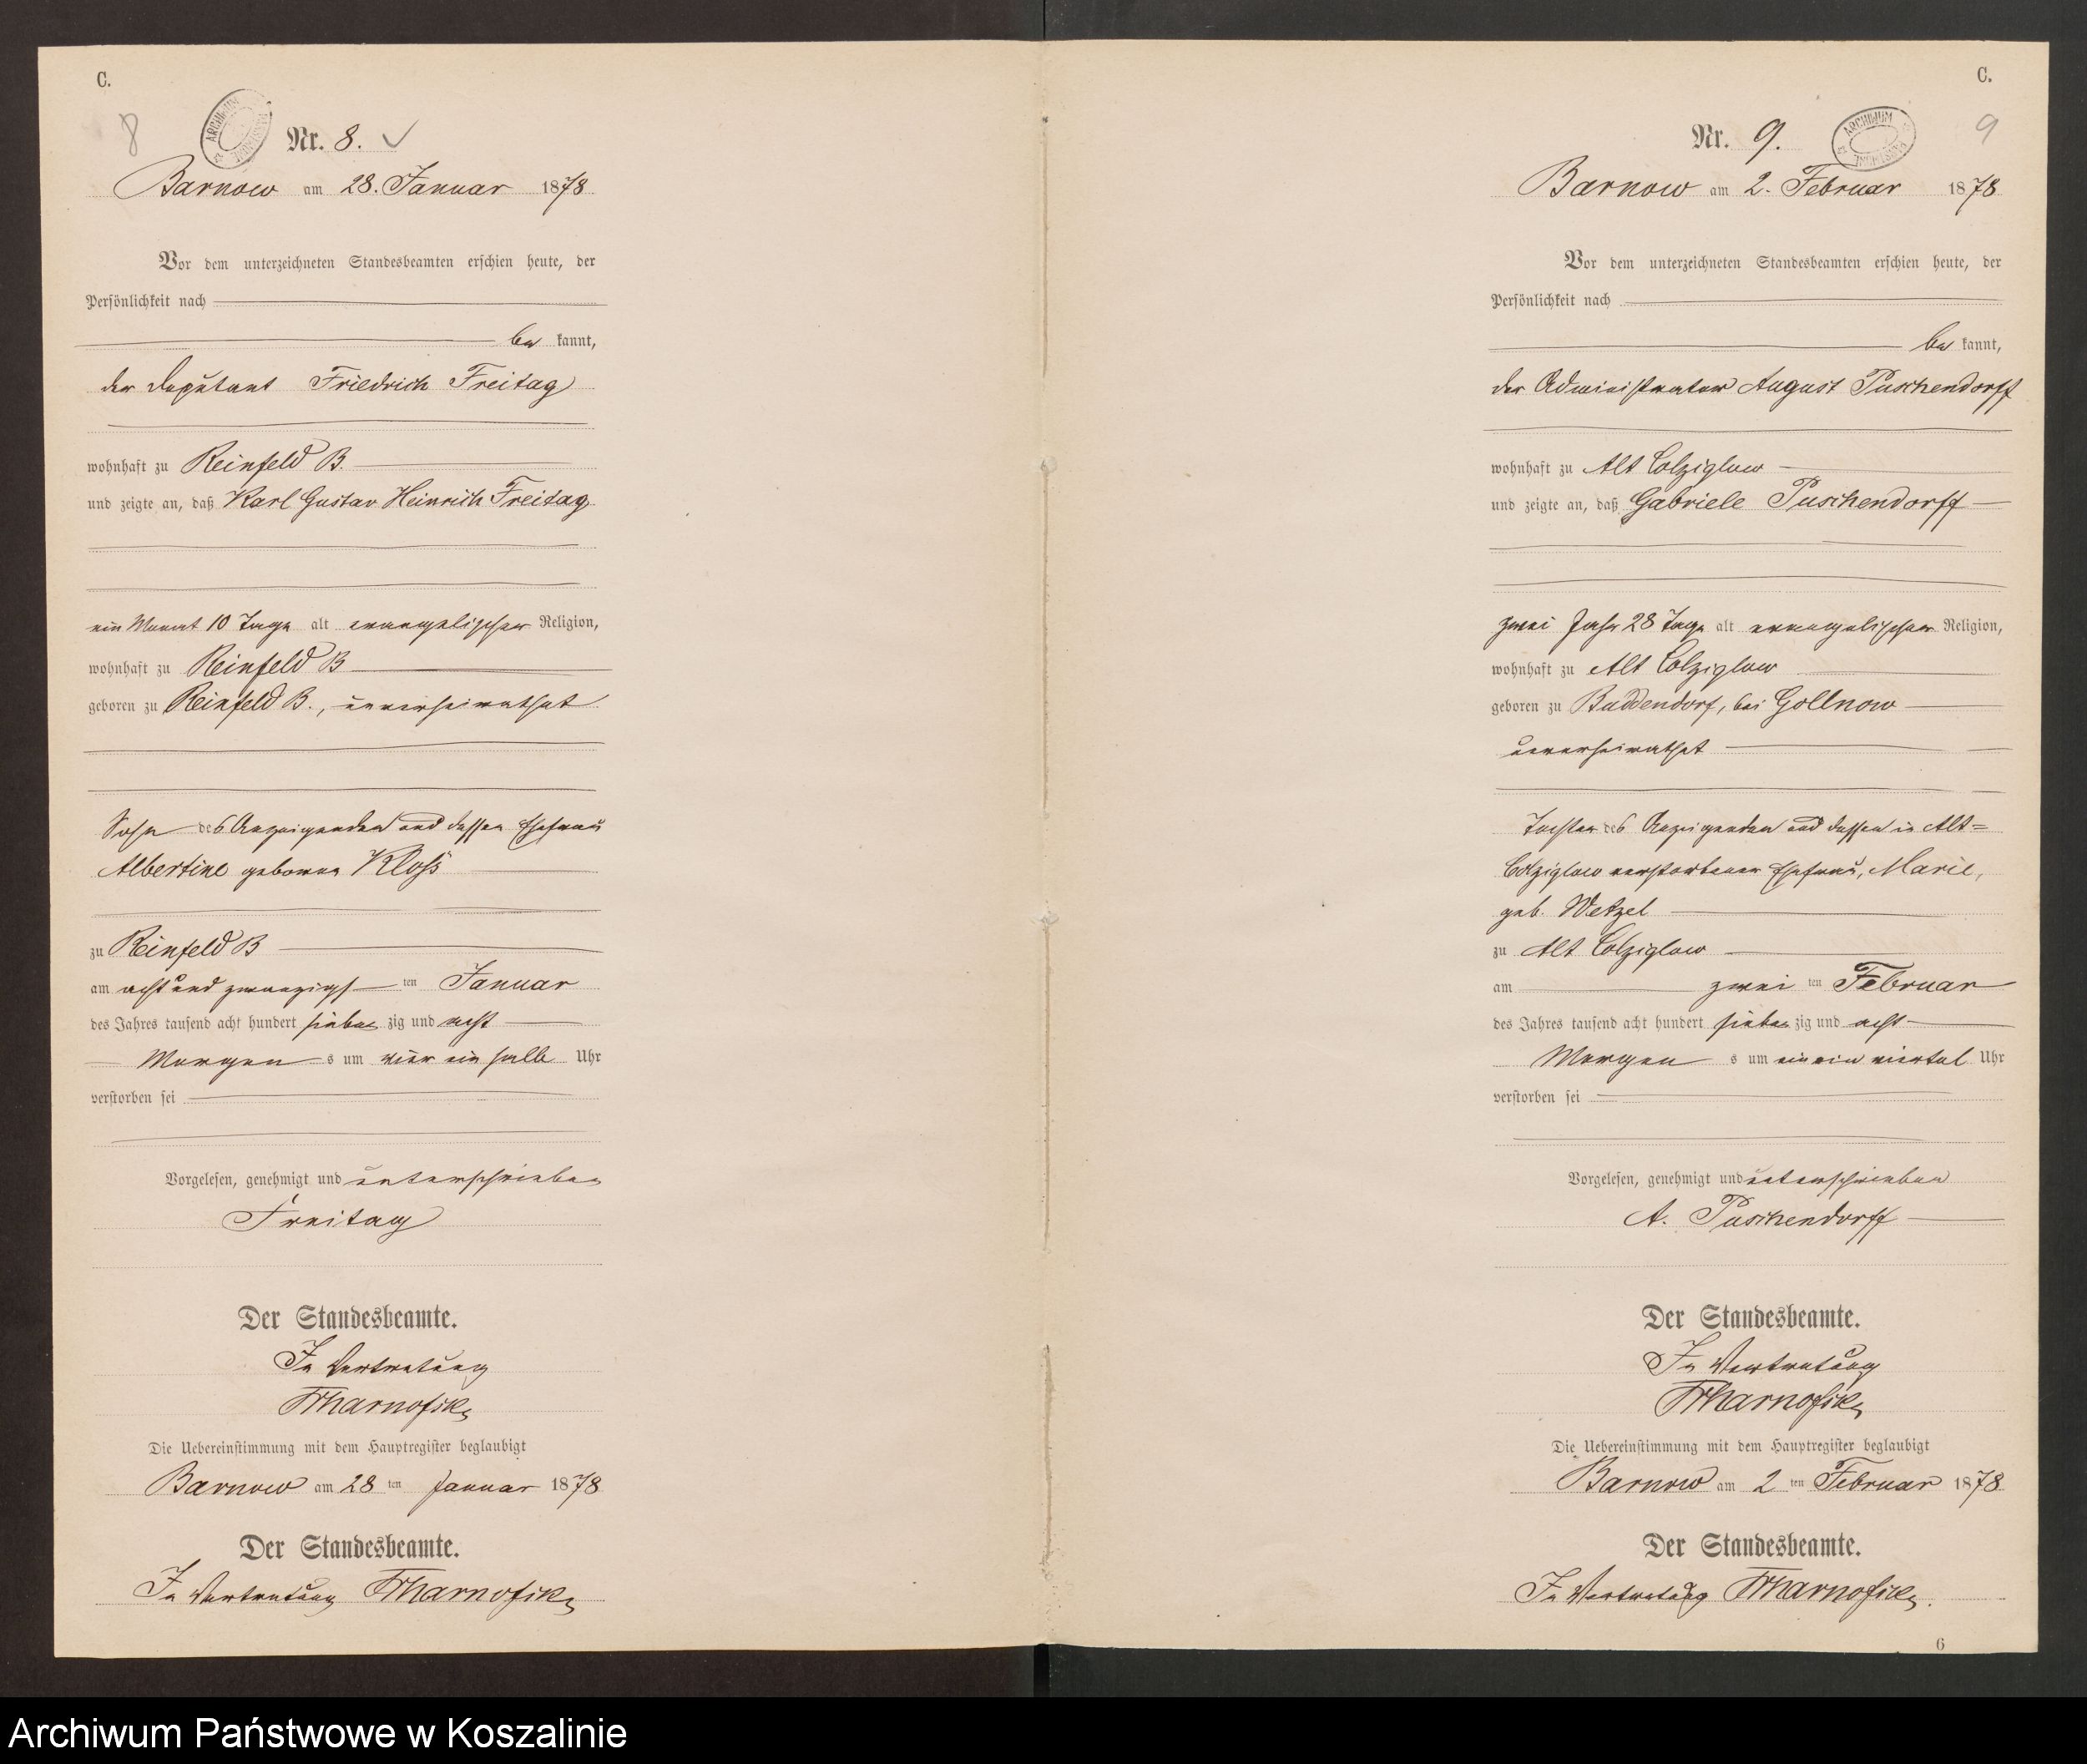 C.
8
Nr. 8.
Barnow am 28. Januar 1878
Vor dem unterzeichneten Standesbeamten erschien heute, der
Persönlichkeit nach
be kannt,
der Deputant Friedrich Freitag
wohnhaft zu Reinfeld B.
und zeigte an, daß Karl Gustav Heinrich Freitag
ein Monat 10 Tage alt evangelischer Religion,
wohnhaft zu Reinfeld B
geboren zu Reinfeld B., unverheirathet
Sohn des Anzeigenden und dessen Ehefrau
Albertine geborne Kloß
zu Reinfeld B
am acht und zwanzigs ten Januar
des Jahres tausend acht hundert sieben zig und acht
Morgen s um vier ein halb Uhr
verstorben sei
Vorgelesen, genehmigt und unterschrieben
Freitag
Der Standesbeamte.
In Vertretung
Die Uebereinstimmung mit dem Hauptregister beglaubigt
Barnow am 28 ten Januar 1878
Der Standesbeamte.
In Vertretung
C.
9
ARCHIWUM
Nr. 9.
Barnow am 2. Februar 1878
Vor dem unterzeichneten Standesbeamten erschien heute, der
Persönlichkeit nach
be kannt,
der Administrator August Puschendorff
wohnhaft zu Alt Colziglow
und zeigte an, daß Gabriele Puschendorff
zwei Jahr 28 Tage alt evangelischer Religion,
wohnhaft zu Alt Colziglow
geboren zu Buddendorf, bei Gollnow
unverheirathet
Tochter des Anzeigenden und dessen in Alt=
Colziglow verstorbener Ehefrau, Marie,
geb. Wetzel
zu Alt Colziglow
am zwei ten Februar
des Jahres tausend acht hundert sieben zig und acht
Morgen s um ein ein viertel Uhr
verstorben sei
Vorgelesen, genehmigt und unterschrieben
A. Puschendorff
Der Standesbeamte.
In Vertretung
Die Uebereinstimmung mit dem Hauptregister beglaubigt
Barnow am 2 ten Februar 1878
Der Standesbeamte.
In Vertretung
6
Archiwum Państwowe w Koszalinie